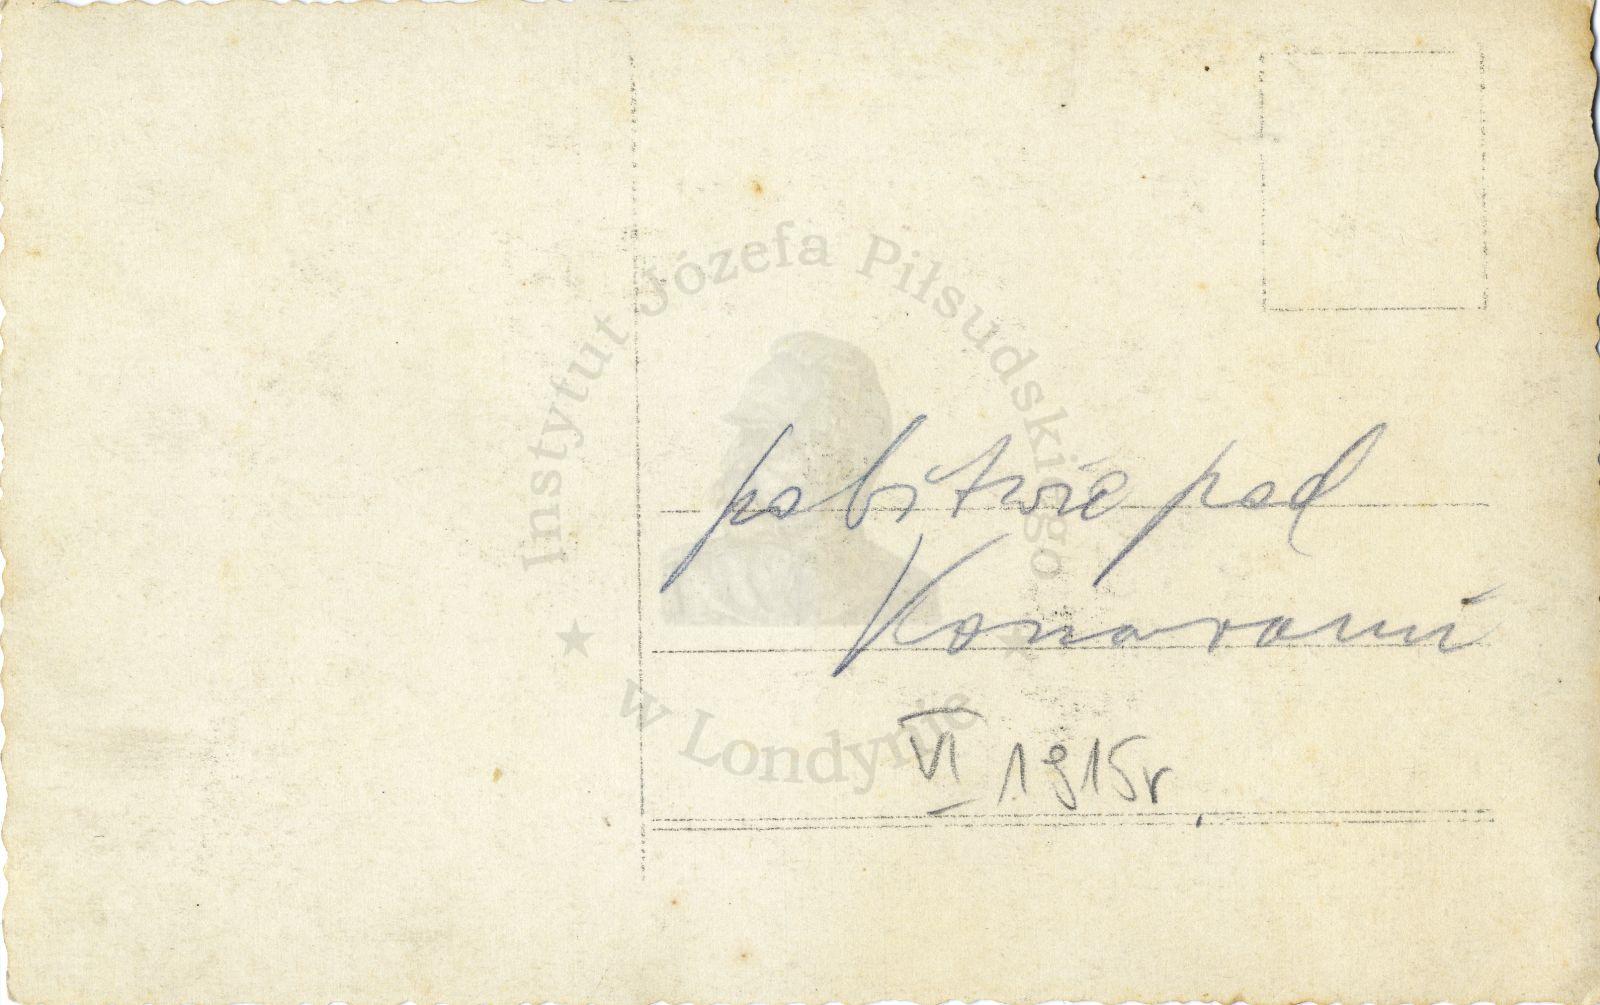 Instytut Józefa Piłsudskiego
w Londynie
po bitwie pod
Konarami
VI 1915r